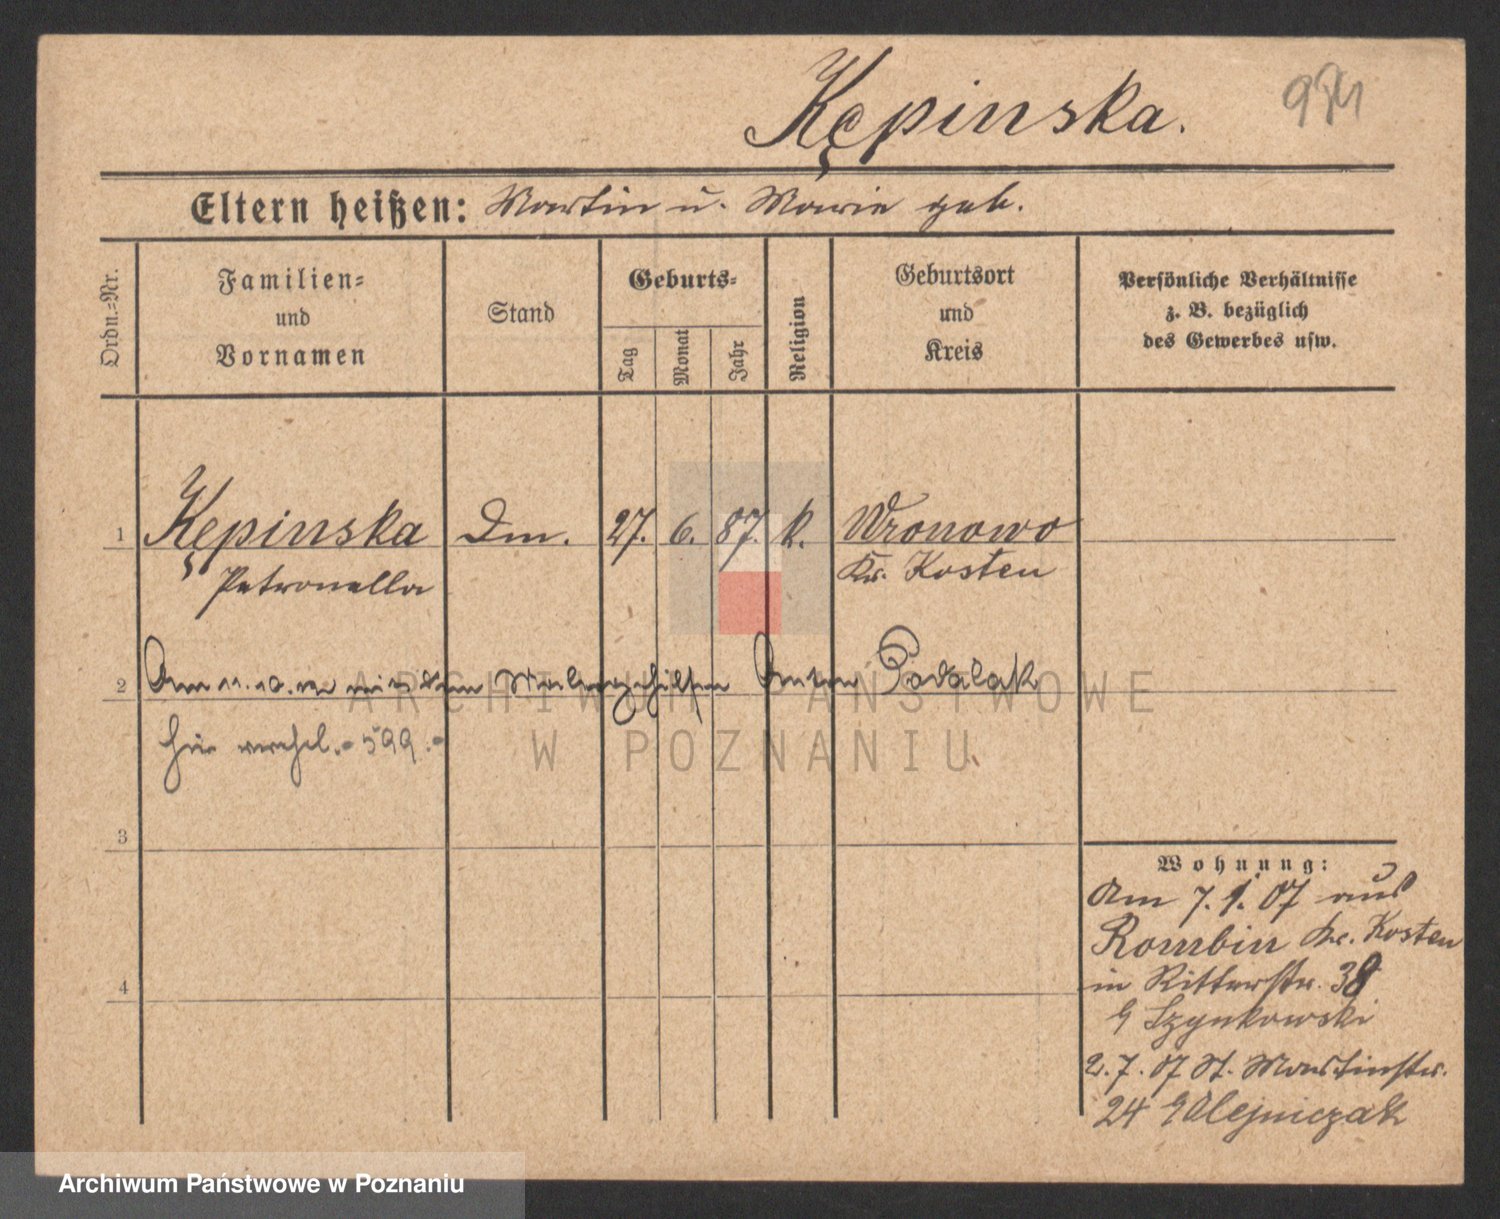 Kępinska.
Eltern heißen: Martin u. Marie geb.
Ordn.=Nr.
Familien=
und
Vornamen
Stand
Geburts=
Tag
Monat
Jahr
Religion
Geburtsort
und
Kreis
Persönliche Verhältnisse
z. B. bezüglich
des Gewerbes usw.
1 Kępinska Dm. 27. 6. 87. k. Wronowo
Petronella Kr. Kosten
2 Am 11.10. mit dem Malergehilfen Anton Podalak
hier verehel. - 599.-
ARCHIWUM PAŃSTWOWE
W POZNANIU
3
Wohnung:
Am 7. 1. 07 aus
Rombin Kr. Kosten
4
in Ritterstr. 38
Szynkowski
2. 7. 07 St. Martinstr.
24 Olejniczak
Archiwum Państwowe w Poznaniu